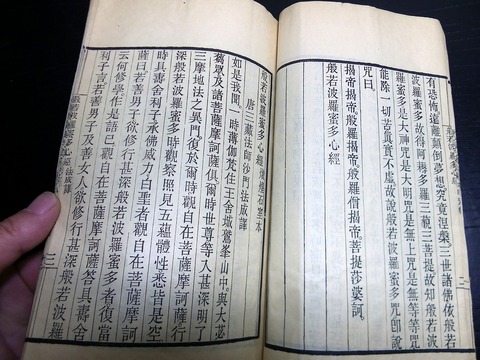 有恐怖遠離顛倒夢想究竟涅槃三世諸佛依般若波
羅蜜多故得阿耨多羅三藐三菩提故知般若波
羅蜜多是大神咒是大明咒是無上咒是無等等咒
能除一切苦真實不虛故說般若波羅蜜多咒卽說
咒曰
揭帝揭帝般羅揭帝般羅僧揭帝菩提莎婆訶
般若波羅蜜多心經
般若波羅蜜多心經燉煌石室本
唐三藏法師沙門法成譯
如是我聞一時薄伽梵住王舍城鷲峯山中與大苾
蒭眾及諸菩薩摩訶薩俱爾時世尊等入甚深明了
三摩地法之異門復於爾時觀自在菩薩摩訶薩行
深般若波羅蜜多時觀察照見五蘊體性悉皆是空
時具壽舍利子承佛威力白聖者觀自在菩薩摩訶
薩曰若善男子欲修行甚深般若波羅蜜多者復當
云何修學作是語已觀自在菩薩摩訶薩答具壽舍
利子言若善男子及善女人欲修行甚深般若波羅
般若波羅蜜多心經法成譯
三